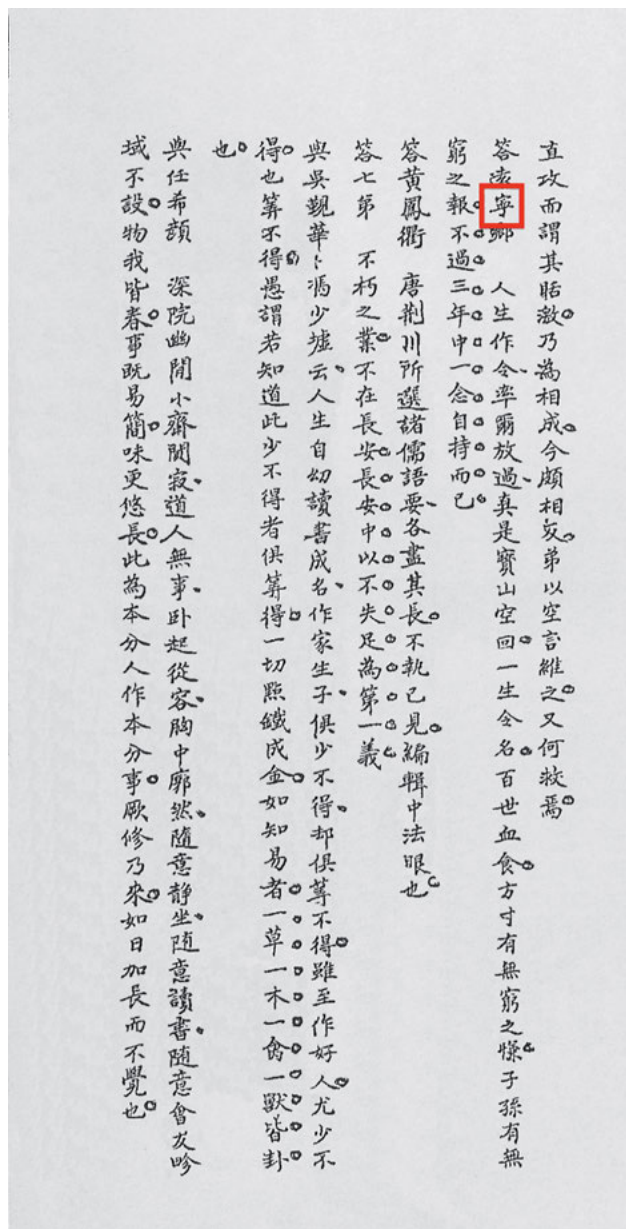 直攻而謂其貼激乃為相成今頗相反弟以空言維之又何救焉
答凌寧鄉　人生作令率爾放過真是寶山空回一生令名百世血食方寸有無窮之慊子孫有無
窮之報不過三年中一念自持而已
答黃鳳衢　唐荆川所選諸儒語要各盡其長不執己見編輯中法眼也
答七弟　不朽之業不在長安長安中以不失足為第一義
與吳覲華〻馮少墟云人生自幼讀書成名作家生子俱少不得却俱筭不得雖至作好人尤少不
得也筭不得愚謂若知道此少不得者俱筭得一切㸃鐵成金如知易者一草一木一禽一獸皆卦
也
與任希顏　深院幽閒小齋閴寂道人無事卧起從容胸中廓然隨意静坐随意讀書随意會友吟
域不設物我皆春事既易簡味更悠長此為本分人作本分事厥修乃來如日加長而不覺也